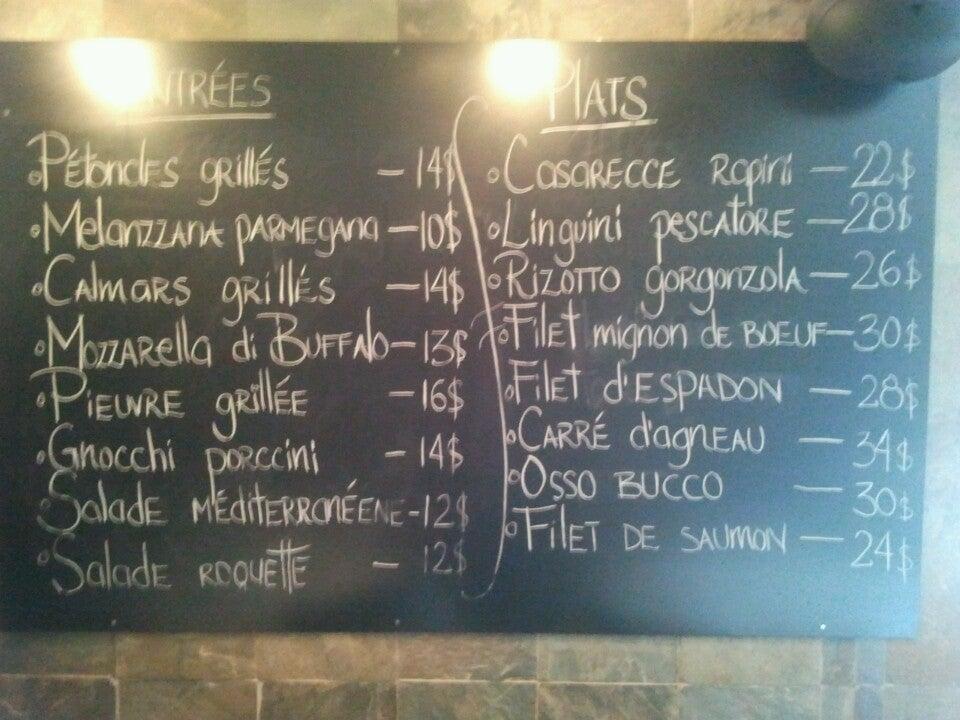 ENTRÉES
Pétoncles grillés - 14$
Melanzzana parmegana - 10$
Calmars grillés - 14$
Mozzarella di Buffalo - 13$
Pieuvre grillée - 16$
Gnocchi porccini - 14$
Salade méditerranéene - 12$
Salade roquette - 12$
PLATS
Casarecce Rapini - 22$
Linguini pescatore - 28$
Rizotto gorgonzola - 26$
Filet mignon de boeuf - 30$
Filet d'espadon - 28$
Carré d'agneau - 34$
Osso bucco - 30$
Filet de saumon - 24$